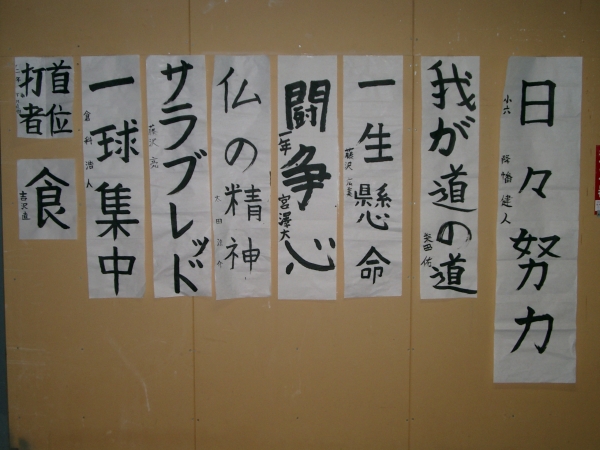 日々努力
小六
健人
我が道の道
矢田 佑
一生懸命
藤沢
闘争心
一年 宮澤大
仏の精神
太田
サラブレッド
藤沢 亮
一球集中
倉科 浩人
首位
打者
食
吉沢直